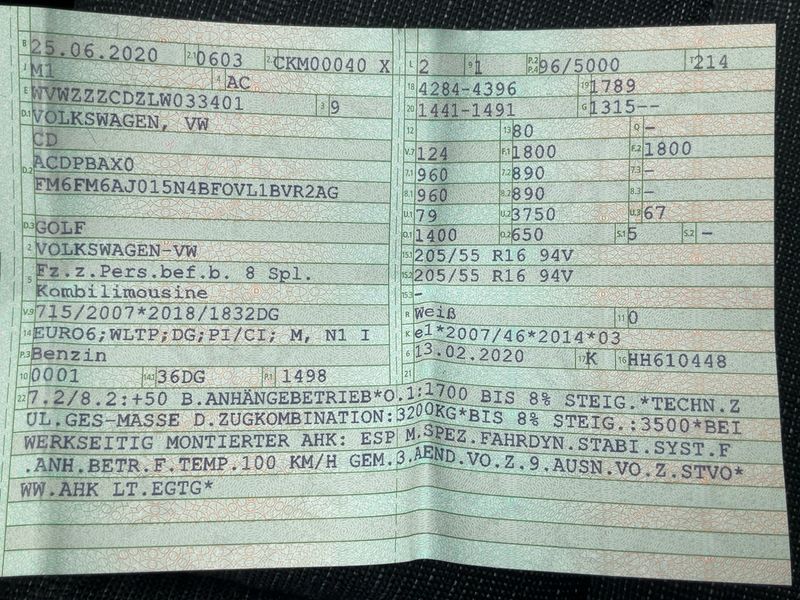 B 25.06.2020 2.1 0603 2.2 CKM00040 X
J M1 4 AC
E WVWZZZCDZLW033401 3 9
D.1 VOLKSWAGEN, VW
CD
D.2 ACDPBAX0
FM6FM6AJ015N4BFOVL1BVR2AG
D.3 GOLF
2 VOLKSWAGEN-VW
5 Fz.z.Pers.bef.b. 8 Spl.
Kombilimousine
V.9 715/2007*2018/1832DG
14 EURO6;WLTP;DG;PI/CI; M, N1 I
P.3 Benzin
10 0001 14.1 36DG P.1 1498
L 2 9 1 P.2 P.4 96/5000 T 214
18 4284-4396 19 1789
20 1441-1491 G 1315--
12 13 80 Q -
V.7 124 F.1 1800 F.2 1800
7.1 960 7.2 890 7.3 -
8.1 960 8.2 890 8.3 -
U.1 79 U.2 3750 U.3 67
O.1 1400 O.2 650 S.1 5 S.2 -
15.1 205/55 R16 94V
15.2 205/55 R16 94V
15.3 -
R Weiß 11 0
K e1*2007/46*2014*03
6 13.02.2020 17 K 16 HH610448
21
22 7.2/8.2:+50 B.ANHÄNGEBETRIEB*O.1:1700 BIS 8% STEIG.*TECHN.Z
UL.GES-MASSE D.ZUGKOMBINATION:3200KG*BIS 8% STEIG.:3500*BEI
WERKSEITIG MONTIERTER AHK: ESP M.SPEZ.FAHRDYN.STABI.SYST.F
.ANH.BETR.F.TEMP.100 KM/H GEM.3.AEND.VO.Z.9.AUSN.VO.Z.STVO*
WW.AHK LT.EGTG*